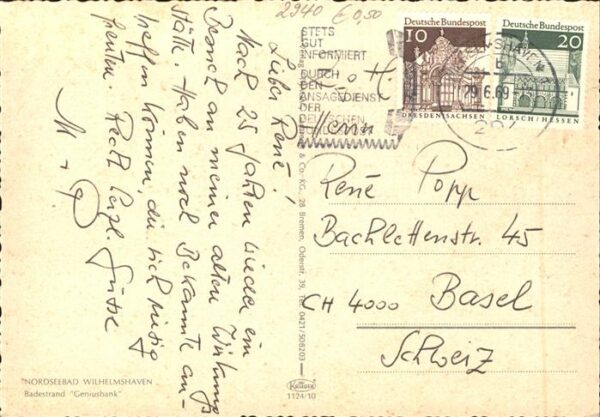 2940 € 0,50
Lieber René!
Nach 25 Jahren wieder ein
Besuch an meiner alten Wirkungs
stätte. Haben noch Bekannte an-
treffen können, die sich riesig
freuten. Recht herzl. Grüsse
STETS
GUT
INFORMIERT
DURCH
DEN
ANSAGEDIENST
DER
DEUTSCHEN
Deutsche Bundespost
10
DRESDEN/SACHSEN
Deutsche Bundespost
20
LORSCH/HESSEN
29.6.69
Herrn
René Popp
Bachlettenstr. 45
CH 4000 Basel
Schweiz
& Co. KG., 28 Bremen, Oderstr. 39, Tel. 0421/506203
NORDSEEBAD WILHELMSHAVEN
Badestrand "Geniusbank"
Krüger
1124/10